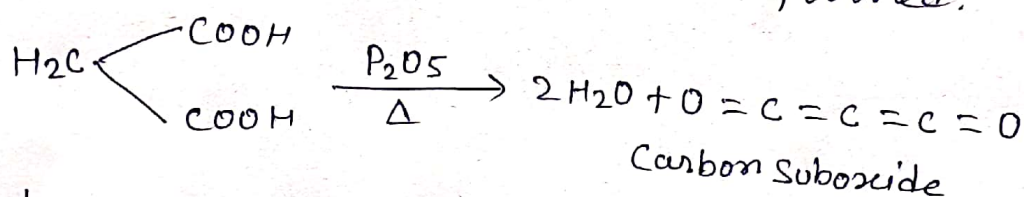 H2C COOH
COOH
P2O5
Δ
→ 2H2O + O = C = C = C = O
Carbon Suboxide